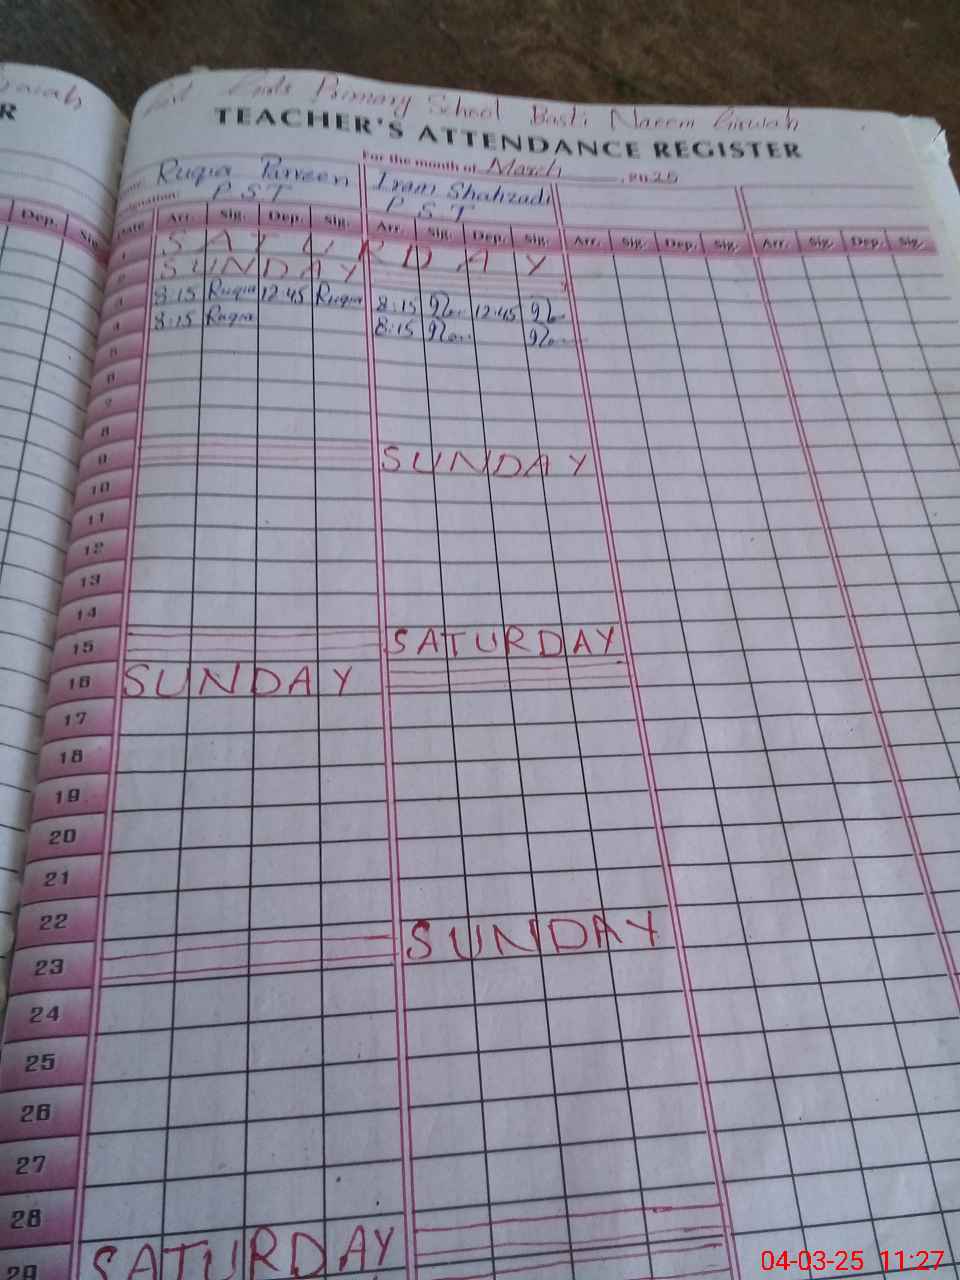 Girls Primary School Basti Naeem
R
TEACHER'S ATTENDANCE REGISTER
For the month of March, 2025
Ruqia Parveen Iram Shahzadi
PST PST
Dep. Date Arr. Sig. Dep. Sig. Arr. Sig. Dep. Sig. Arr. Sig. Dep. Sig. Arr. Sig. Dep. Sig.
1 SATURDAY
2 SUNDAY
3 8:15 Ruqia 12:45 Ruqia 8:15 12:45
4 8:15 Ruqia 8:15
5
6
7
8
9 SUNDAY
10
11
12
13
14
15 SATURDAY
16 SUNDAY
17
18
19
20
21
22
23 SUNDAY
24
25
26
27
28
29 SATURDAY
04-03-25 11:27